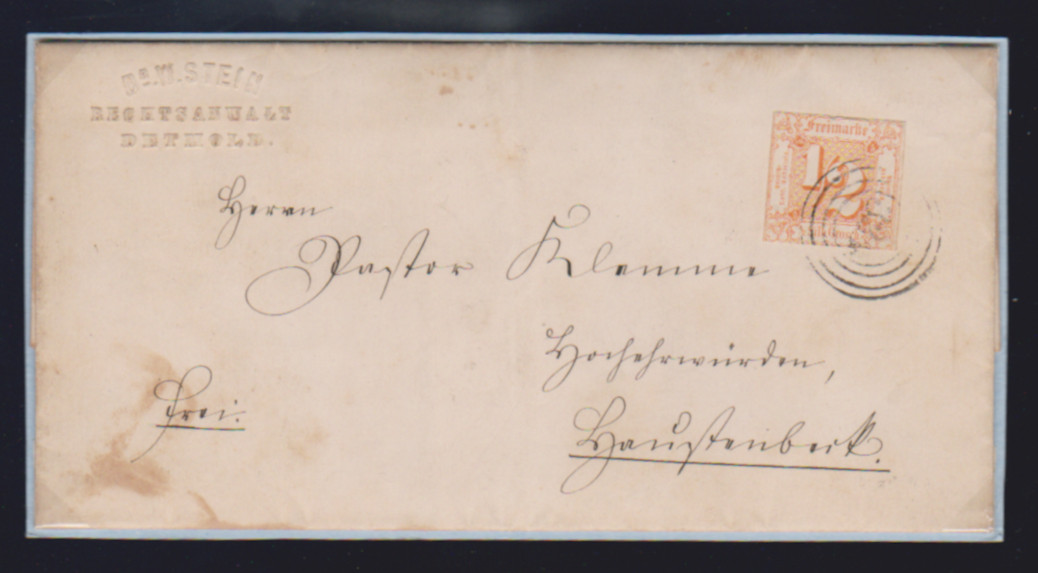 Dr. W. STEIN
RECHTSANWALT
DETMOLD.
Freimarke
1/2
Herrn
Pastor Klemme
Hochehrwürden,
frei.
Haustenbeck.